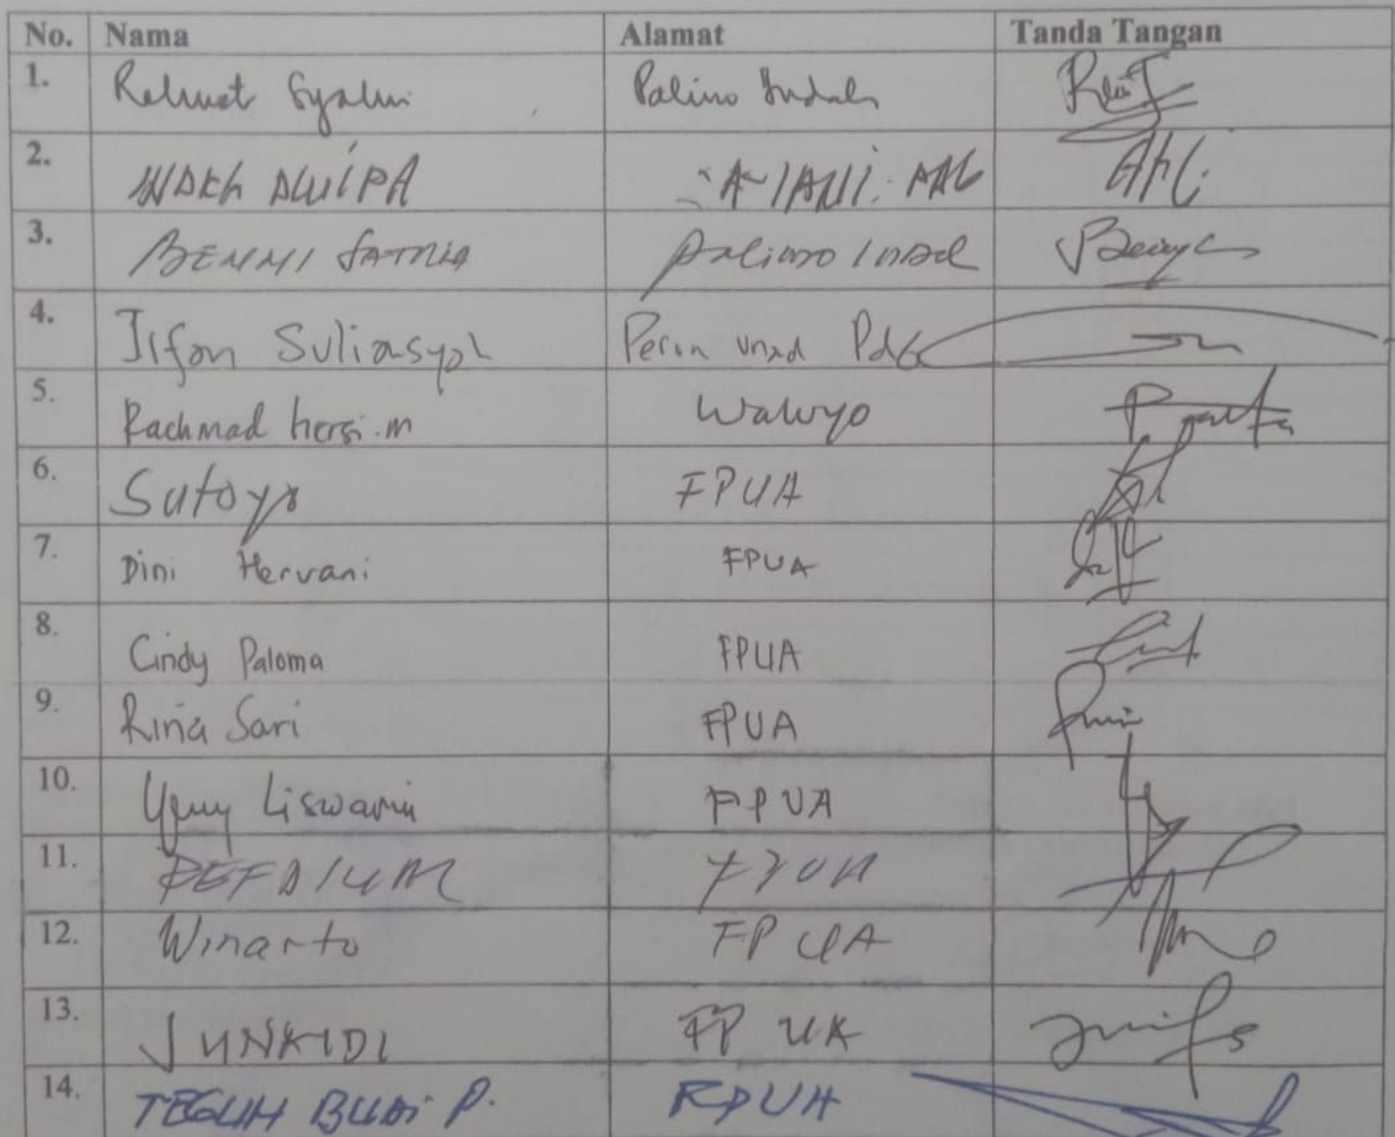 No. Nama Alamat Tanda Tangan
1. Rahmat Syahni Palimo Indah
2. INDAH DWIPA A. YANI. PDG
3. BENNI SATRIA Palimo Indah
4. Ilfan Suliasyah Perum Unad Pdg
5. Rachmad hersi.m Waluyo
6. Sutoyo FPUA
7. Dini Hervani FPUA
8. Cindy Paloma FPUA
9. Rina Sari FPUA
10. Yeny Liswarni FPUA
11. FPUA
12. Winarto FPUA
13. JUNAIDI FP UA
14. TEGUH BUDi P. FPUA